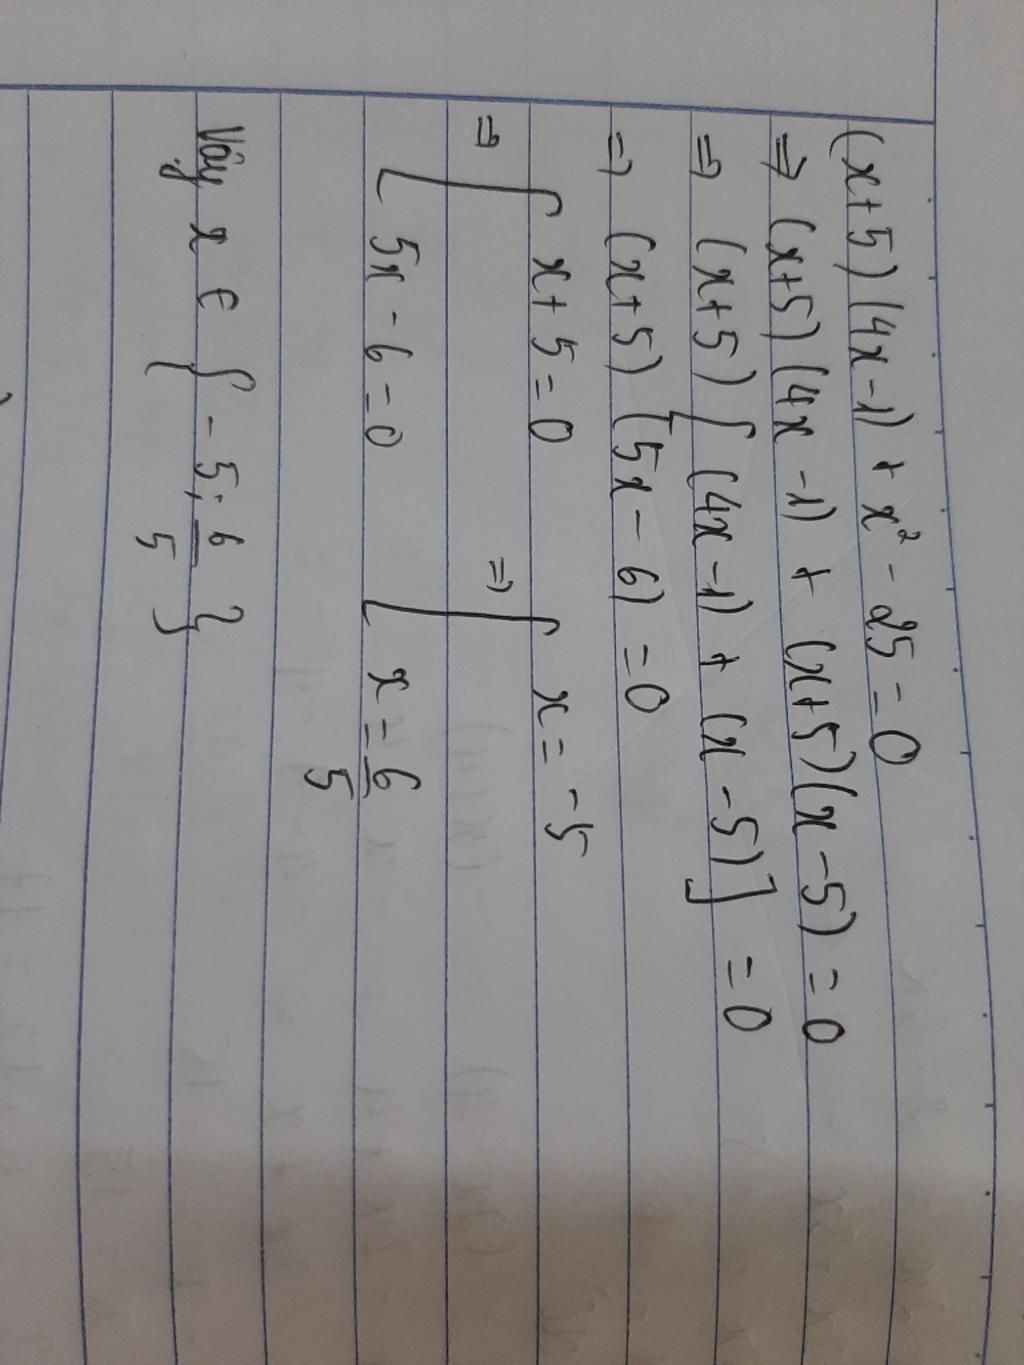 (x+5)(4x-1) + x² - 25 = 0
=> (x+5)(4x-1) + (x+5)(x-5) = 0
=> (x+5)[(4x-1) + (x-5)] = 0
=> (x+5)(5x-6) = 0
=> [ x+5=0 => [ x = -5
[ 5x-6=0 [ x = 6/5
Vậy x ∈ { -5; 6/5 }